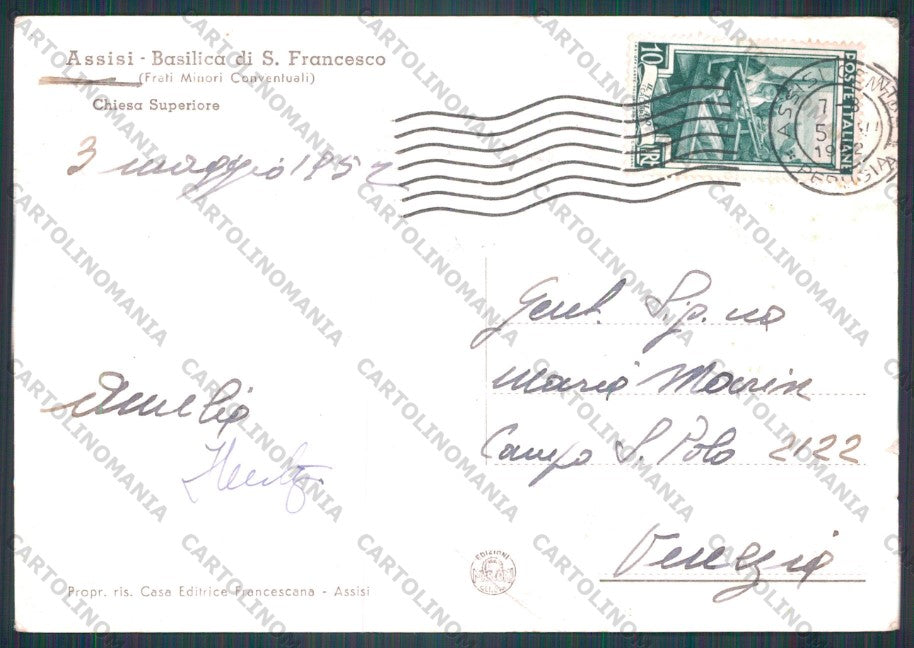 Assisi - Basilica di S. Francesco
(Frati Minori Conventuali)
Chiesa Superiore
3 maggio 1952
POSTE ITALIANE
10
LIRE
ASSISI CENTRO
7 - 8
5
1952
PERUGIA
Gent. Sig.na
Maria Marin
Campo S. Polo 2122
Venezia
Amelia
EDIZIONI
Propr. ris. Casa Editrice Francescana - Assisi
CARTOLINOMANIA